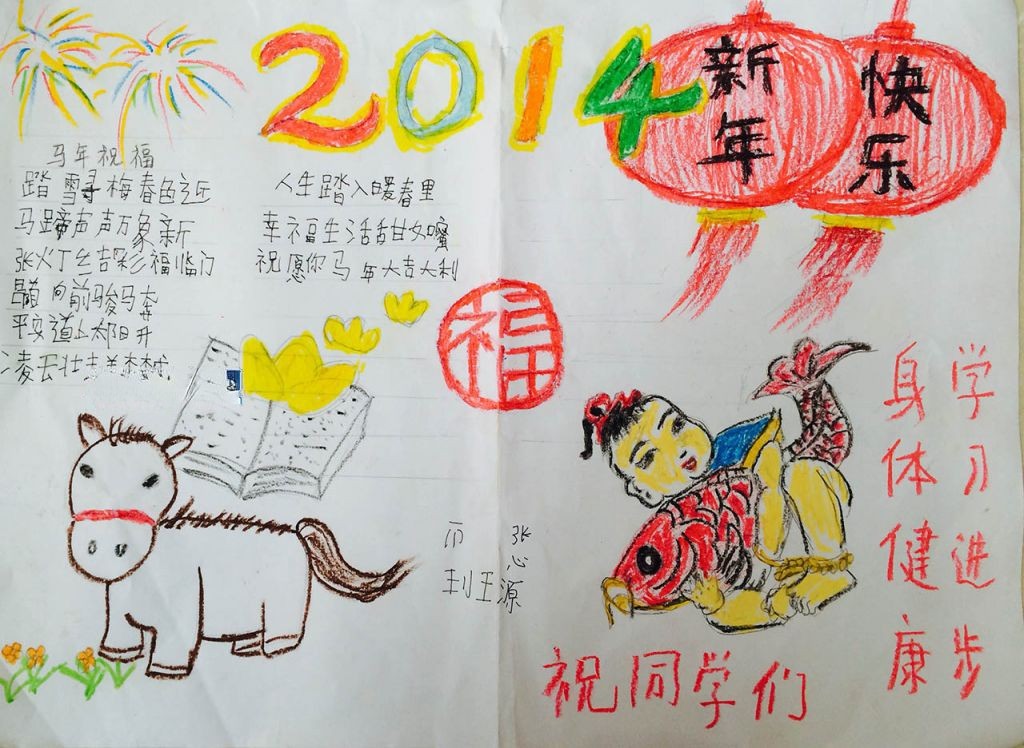 2014
新年
快乐
马年祝福
踏雪寻梅春色近
马蹄声声万象新
张火丁丝吉彩福临门
向前骏马奔
平安道上太阳升
凌云壮志
人生踏入暖春里
幸福生活甜如嘧
祝愿你马年大吉大利
福
学习进步
身体健康
祝同学们
张心源